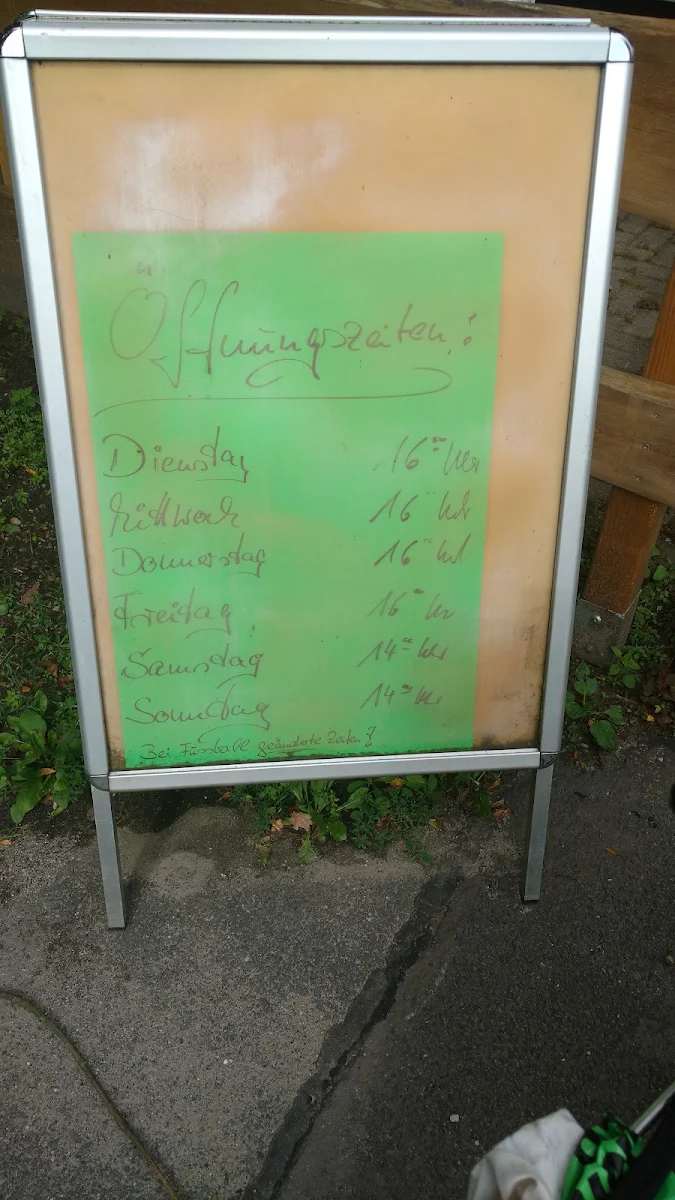 Öffnungszeiten:
Dienstag 16⁰⁰ Uhr
Mittwoch 16⁰⁰ Uhr
Donnerstag 16⁰⁰ Uhr
Freitag 16⁰⁰ Uhr
Samstag 14⁰⁰ Uhr
Sonntag 14⁰⁰ Uhr
Bei Fussball geänderte Zeiten!